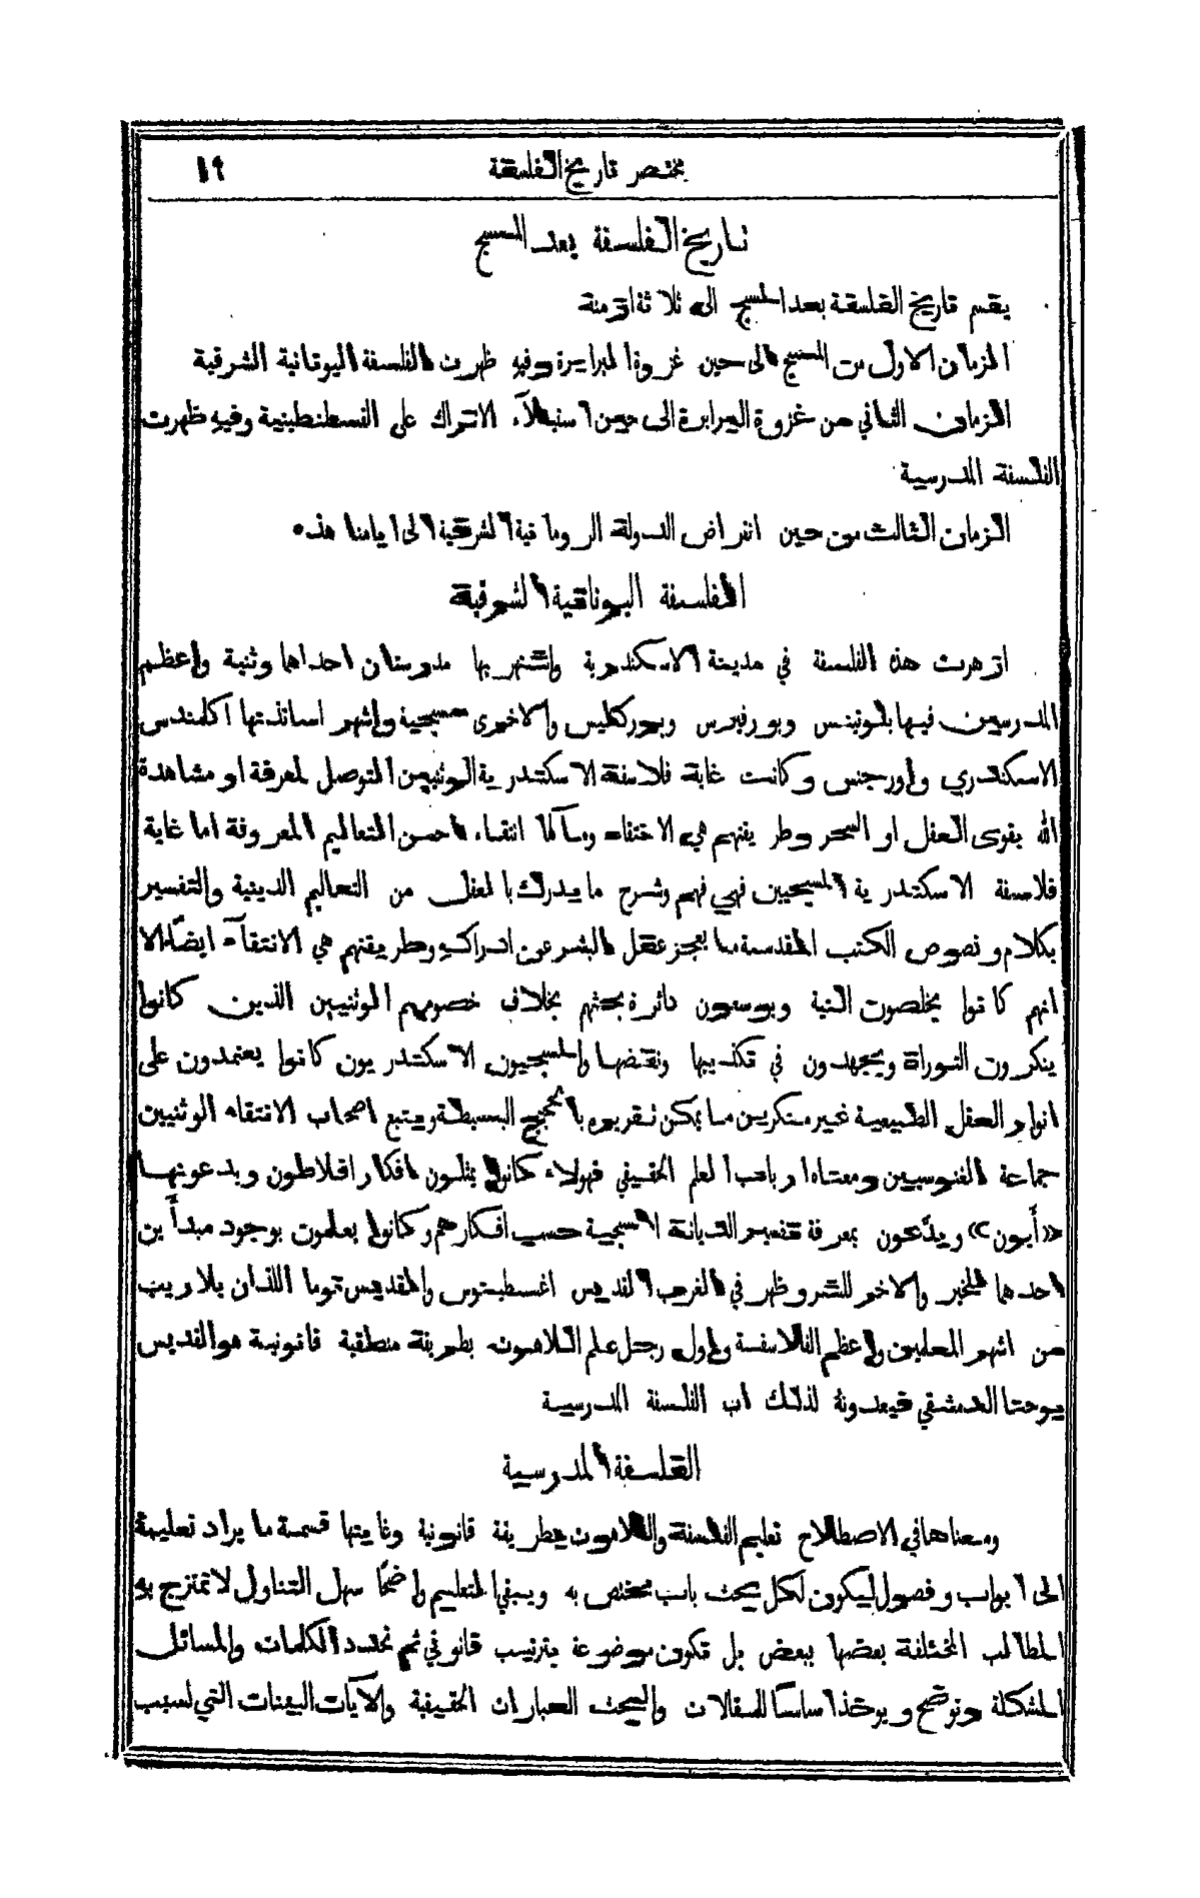 مختصر تاريخ الفلسفة ١٩
تاريخ الفلسفة بعد المسيح
يقسم تاريخ الفلسفة بعد المسيح الى ثلاثة ازمنة
الزمان الاول من المسيح الى حين غزوة البرابرة وفيه ظهرت الفلسفة اليونانية الشرقية
الزمان الثاني من غزوة البرابرة الى حين استيلاء الاتراك على القسطنطينية وفيه ظهرت
الفلسفة المدرسية
الزمان الثالث من حين انقراض الدولة الرومانية الشرقية الى ايامنا هذه
الفلسفة اليونانية الشرقية
ازهرت هذه الفلسفة في مدينة الاسكندرية واشتهر بها مدرستان احداها وثنية واعظم
المدرسين فيها بلوتينس وبورفيرس وبوركليس والاخرى مسيحية واشهر اساتذتها اكلمندس
الاسكندري واورجنس وكانت غاية فلاسفة الاسكندرية الوثنيين التوصل لمعرفة او مشاهدة
الله بقوى العقل او السحر وطريقتهم هي الانتقاء ومآلها انتقاء احسن التعاليم المعروفة اما غاية
فلاسفة الاسكندرية المسيحيين فهي فهم وشرح ما يدرك بالعقل من التعاليم الدينية والتفسير
بكلام ونصوص الكتب المقدسة ما يعجز عقل البشر عن ادراكه وطريقتهم هي الانتقآء ايضاً الا
انهم كانوا يخلصون النية ويوسعون دائرة بحثهم بخلاف خصومهم الوثنيين الذين كانوا
ينكرون التوراة ويجهدون في تكذيبها ونقضها والمسيحيون الاسكندريون كانوا يعتمدون على
انوار العقل الطبيعية غير منكرين ما يمكن تقريره بالحجج البسيطة ويتبع اصحاب الانتقاء الوثنيين
جماعة الغنوسيين ومعناه ارباب العلم الحقيقي فهولاء كانوا يمثلون افكار افلاطون ويدعونها
«أيون» ويدّعون بمعرفة تفسير الديانة المسيحية حسب افكارهم وكانوا يعلمون بوجود مبدأين
احدهما للخير والاخر للشر وظهر في الغرب القديس اغسطينوس والقديس توما اللذان بلا ريب
من اشهر المعلمين واعظم الفلاسفة واول رجل علم اللاهوت بطريقة منطقية قانونية هو القديس
يوحنا الدمشقي فيعدونه لذلك اب الفلسفة المدرسية
الفلسفة المدرسية
ومعناها في الاصطلاح تعليم الفلسفة واللاهوت بطريقة قانونية وغايتها قسمة ما يراد تعليمه
الى ابواب وفصول ليكون لكل بحث باب مختص به ويبقى التعليم واضحًا سهل التناول لا تمتزج به
المطالب المختلفة بعضها ببعض بل تكون موضوعة بترتيب قانوني ثم تحدد الكلمات والمسائل
المشكلة وتوضح ويوخذ اساسًا للمقالات والبحث العبارات الحقيقية والآيات البينات التي لسبب